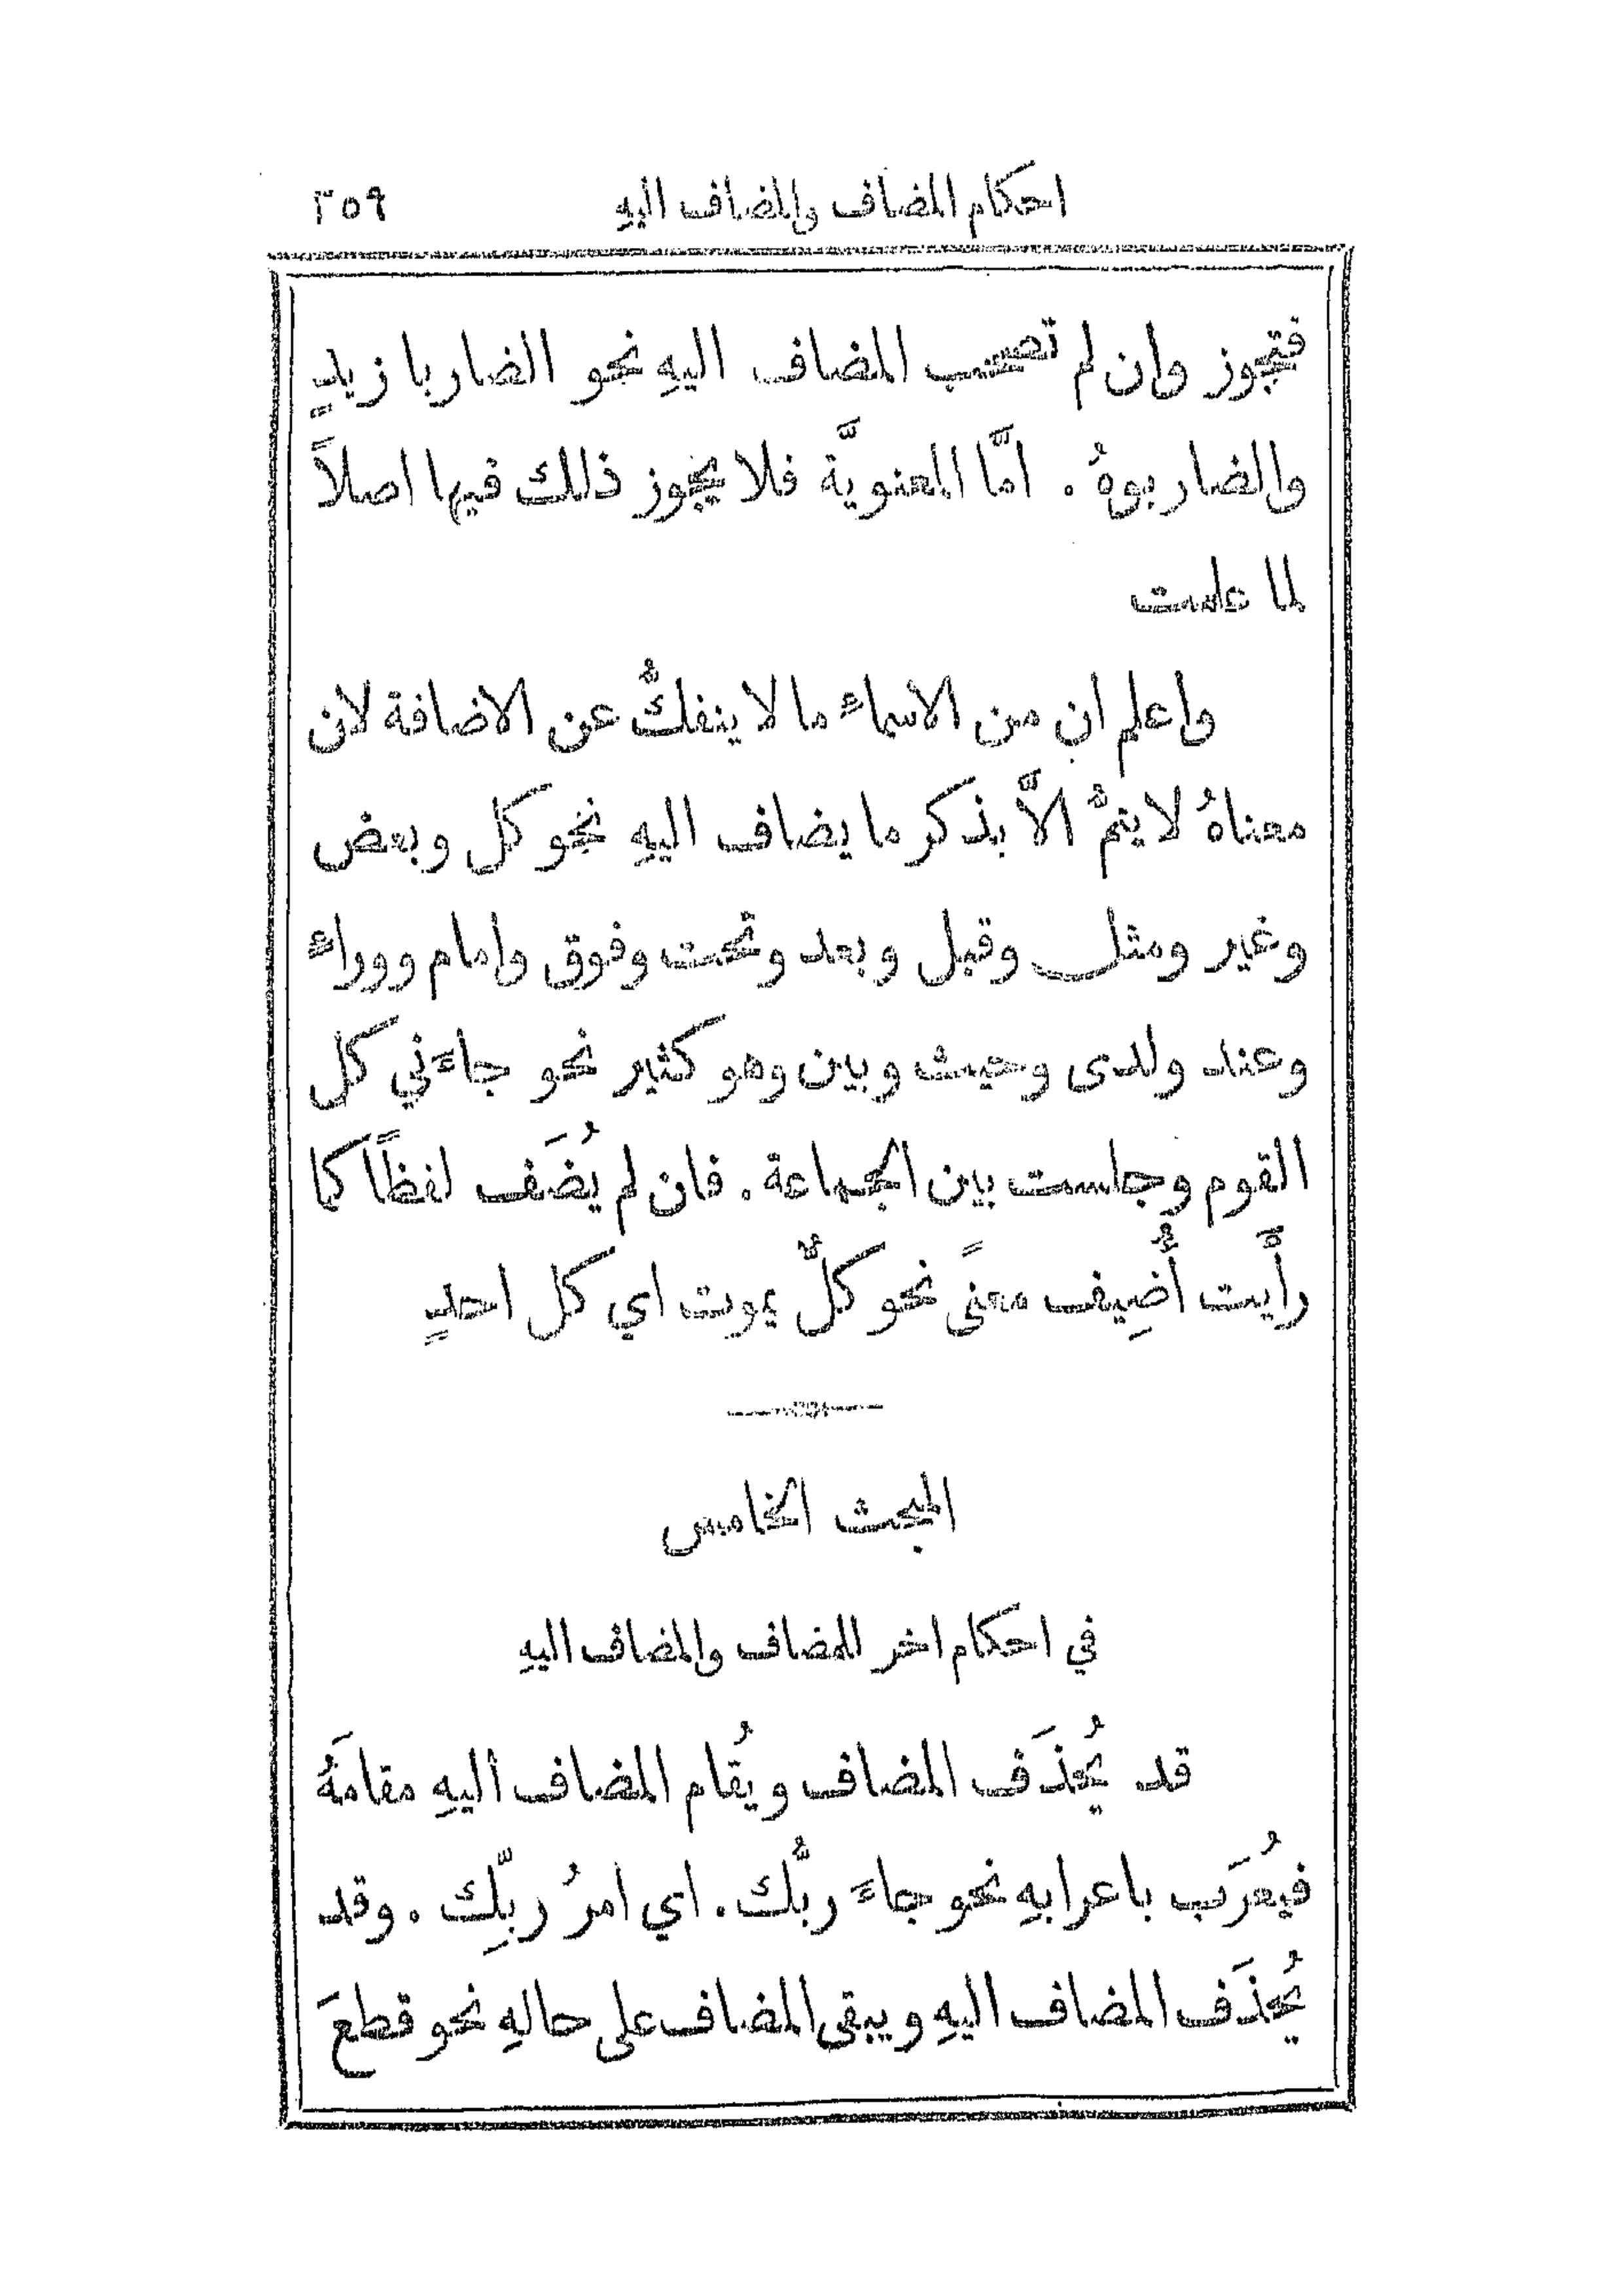 احكام المضاف والمضاف اليهِ ٢٥٩
فتجوز وان لم تصحب المضاف اليهِ نحو الضاربا زيدٍ
والضاربوهُ . امَّا المعنويَّة فلا يجوز ذلك فيها اصلاً
لما علمت
واعلم ان من الاسماءَ ما لا ينفكُّ عن الاضافة لان
معناهُ لا يتمُّ الاَّ بذكر ما يضاف اليهِ نحو كل وبعض
وغير ومثل وقبل وبعد وتحت وفوق وامام ووراءَ
وعند ولدى وحيث وبين وهو كثير نحو جاءَني كل
القوم وجلست بين الجماعة . فان لم يُضَف لفظاً كما
رأَيت أُضِيف معنىً نحو كلٌّ يموت اي كل احدٍ
المبحث الخامس
في احكام اخر للمضاف والمضاف اليهِ
قد يُحذَف المضاف ويُقام المضاف اليهِ مقامَهُ
فيُعرَب باعرابهِ نحو جاءَ ربُّك . اي امرُ ربِّك . وقد
يُحذَف المضاف اليهِ ويبقى المضاف على حالهِ نحو قطعَ